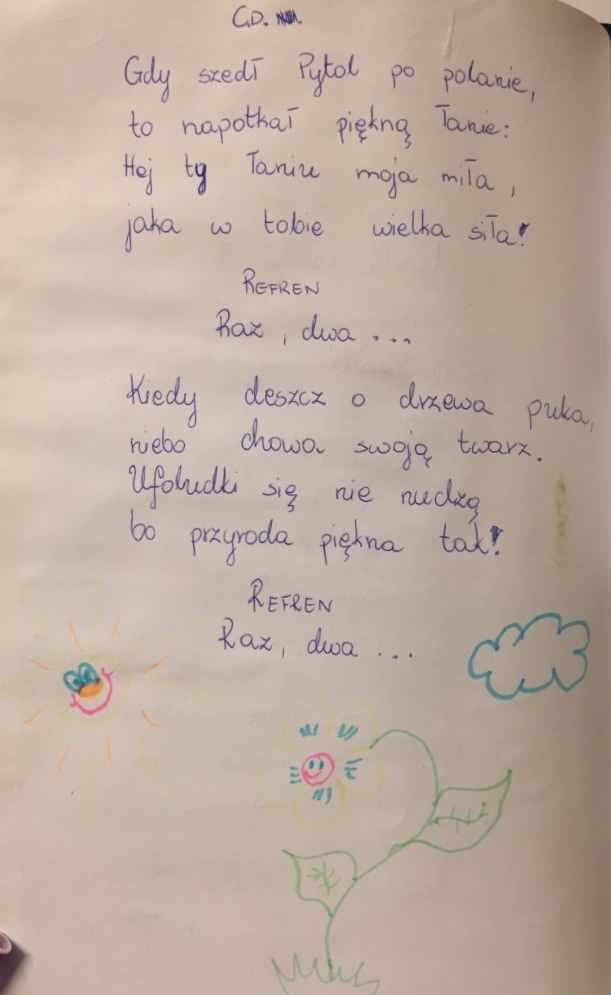 C.D.
Gdy szedł Pytol po polanie,
to napotkał piękną Łanie:
Hej ty Łaniu moja miła,
jaka w tobie wielka siła!
REFREN
Raz, dwa ...
Kiedy deszcz o drzewa puka,
niebo chowa swoją twarz.
Ufoludki się nie nudzą
bo przyroda piękna tak!
REFREN
Raz, dwa ...